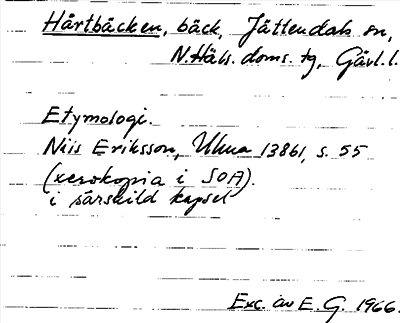 Hårtbäcken, bäck, Jättendals sn,
N.Häls. doms. tg, Gävl. l.
Etymologi.
Nils Eriksson, Ulma 13861, s. 55
(xerokopia i SOA).
i särskild kapsel
Exc. av E. G. 1966.